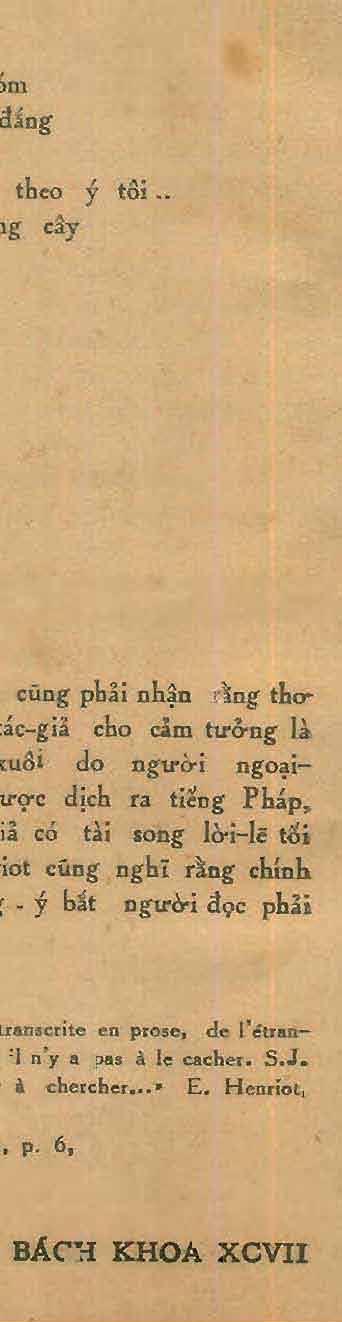 óm
đắng
theo ý tôi ..
ng cây
cũng phải nhận rằng thơ
tác-giả cho cảm tưởng là
xuôi do người ngoại-
ược dịch ra tiếng Pháp,
iả có tài song lời-lẽ tối
iot cũng nghĩ rằng chính
g - ý bắt người đọc phải
transcrite en prose, de l'étran-
il n'y a pas à le cacher. S.J.
à chercher...» E. Henriot,
, p. 6,
BÁCH KHOA XCVII